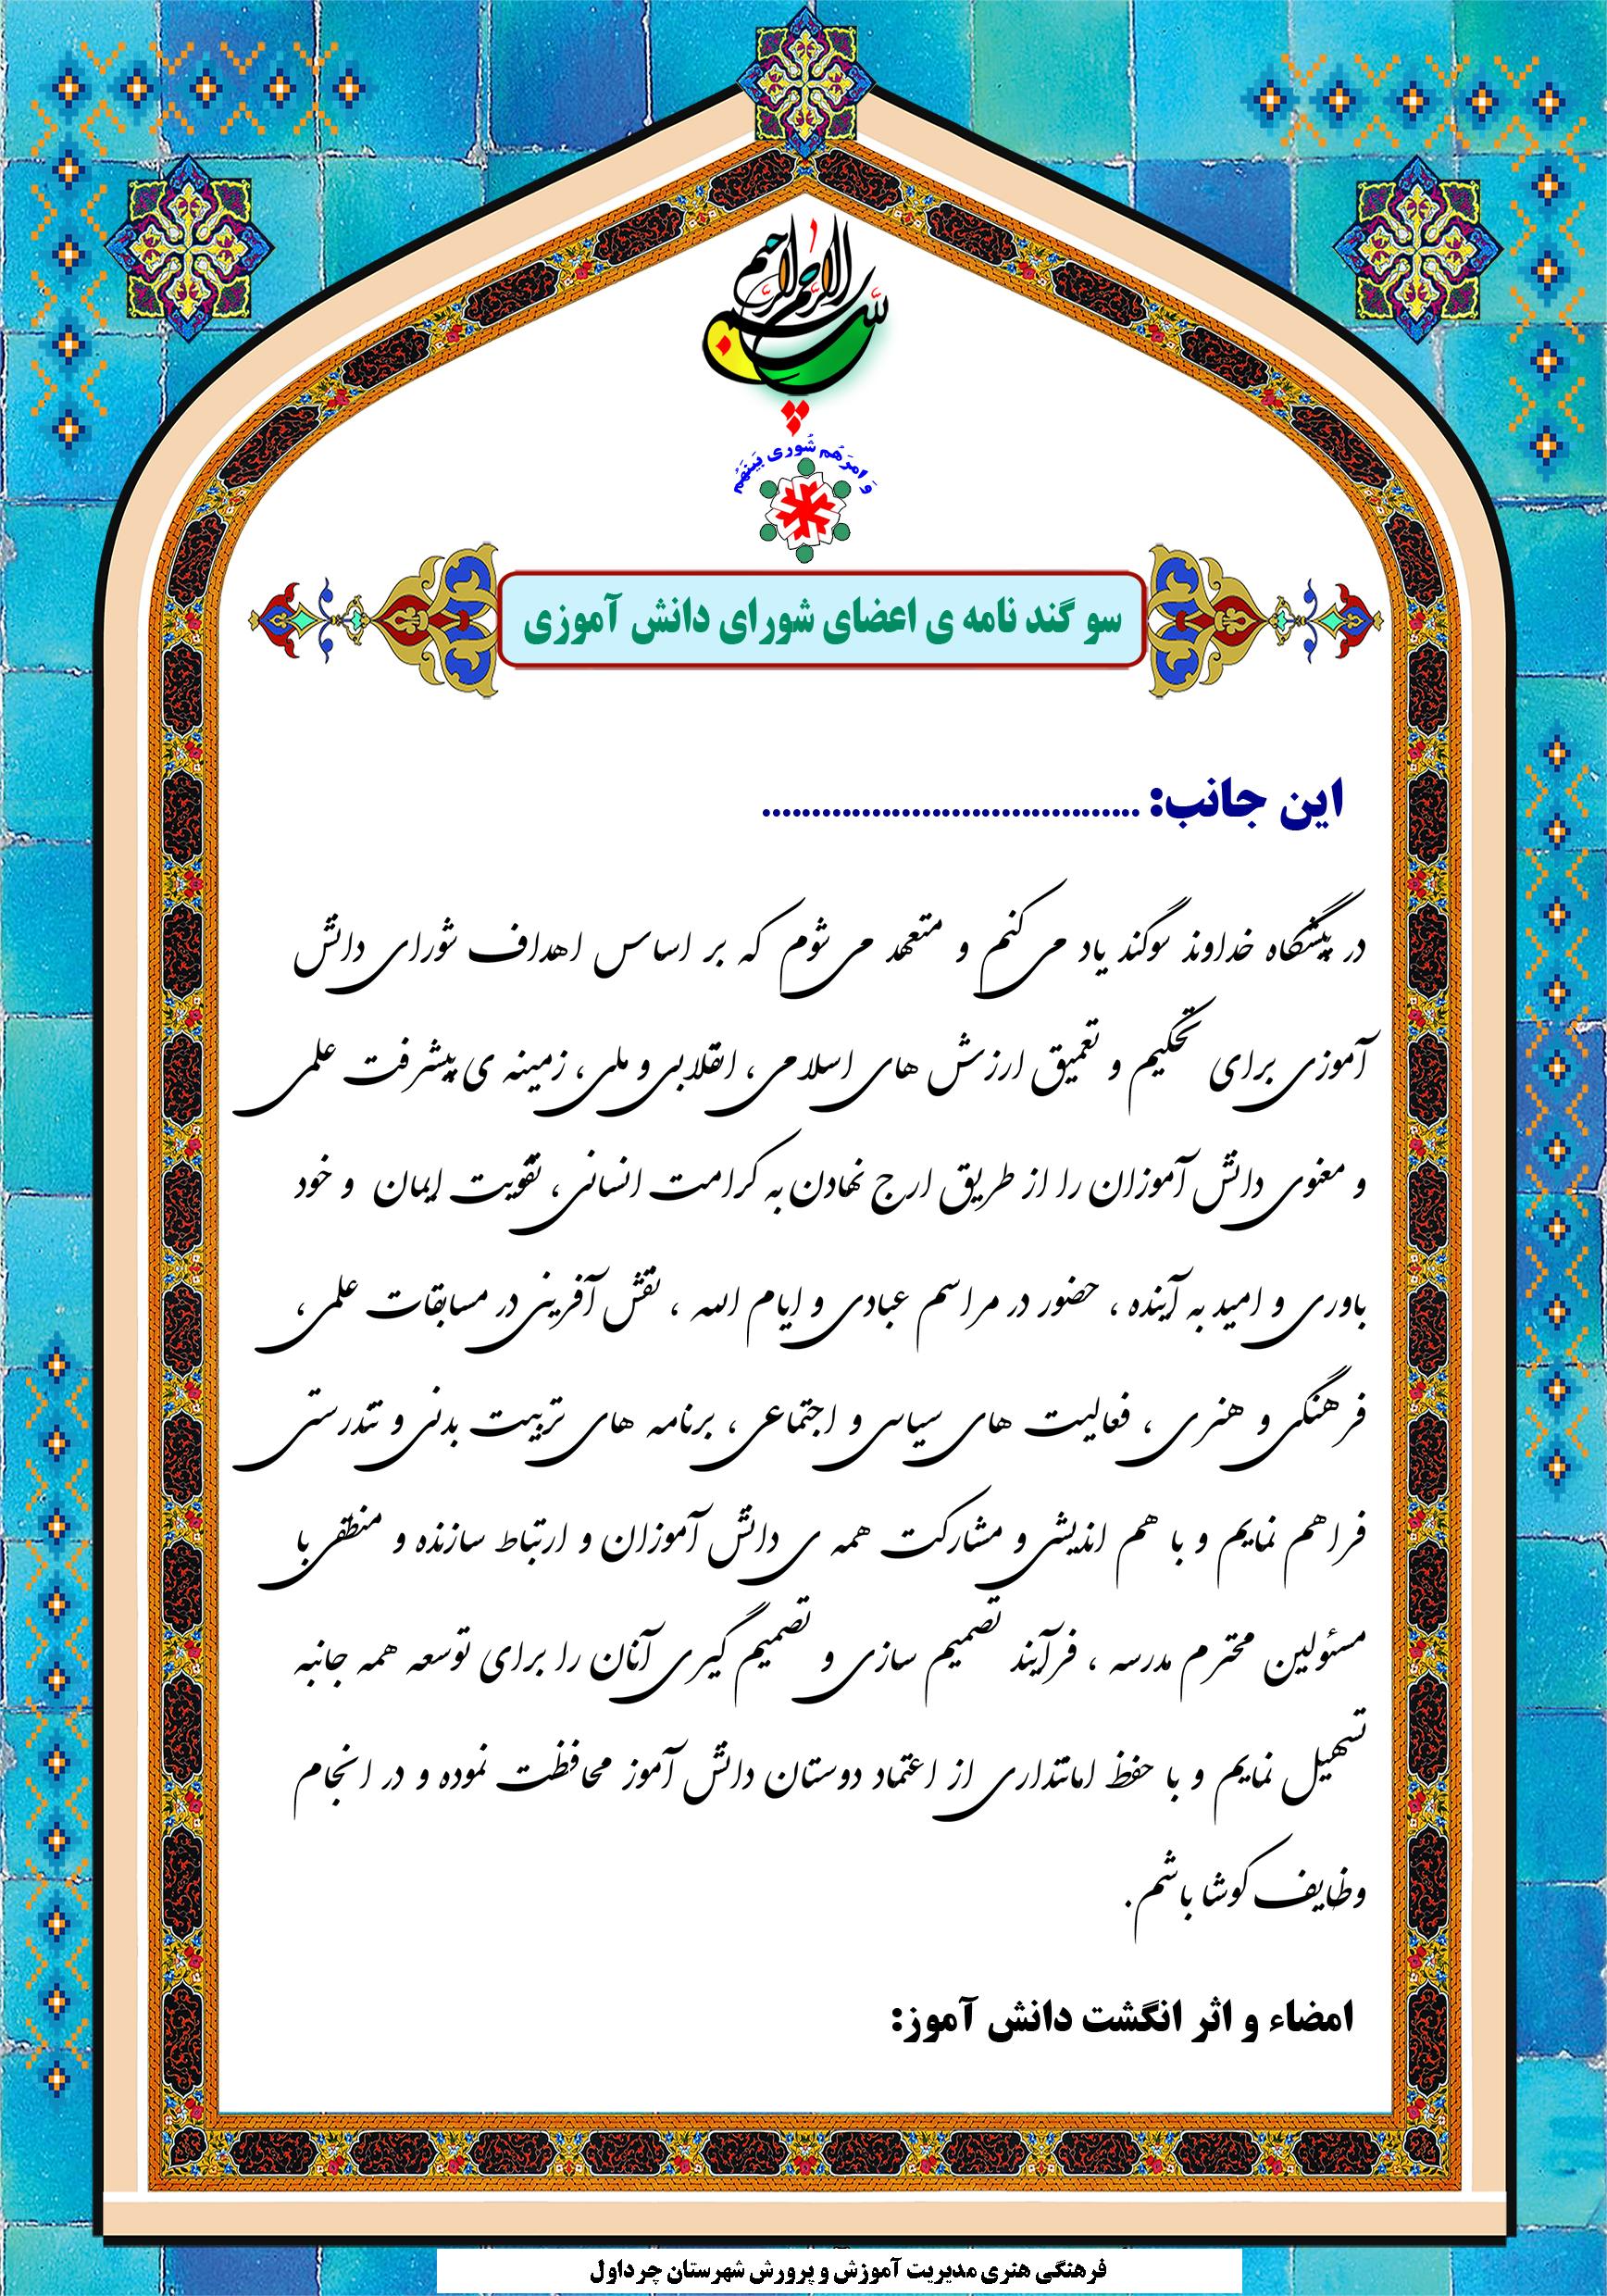 بسم الله الرحمن الرحیم
وَ امرَهُم شُوری بَینَهُم
سو گند نامه ی اعضای شورای دانش آموزی
این جانب: ......................................
در پیشگاه خداوند سوگند یاد می کنم و متعهد می شوم که بر اساس اهداف شورای دانش
آموزی برای تحکیم و تعمیق ارزش های اسلامی، انقلابی و ملی، زمینه ی پیشرفت علمی
و معنوی دانش آموزان را از طریق ارج نهادن به کرامت انسانی، تقویت ایمان و خود
باوری و امید به آینده ، حضور در مراسم عبادی و ایام الله ، نقش آفرینی در مسابقات علمی ،
فرهنگی و هنری ، فعالیت های سیاسی و اجتماعی ، برنامه های تربیت بدنی و تندرستی
فراهم نمایم و با هم اندیشی و مشارکت همه ی دانش آموزان و ارتباط سازنده و منطقی با
مسئولین محترم مدرسه ، فرآیند تصمیم سازی و تصمیم گیری آنان را برای توسعه همه جانبه
تسهیل نمایم و با حفظ امانتداری از اعتماد دوستان دانش آموز محافظت نموده و در انجام
وظایف کوشا باشم.
امضاء و اثر انگشت دانش آموز:
فرهنگی هنری مدیریت آموزش و پرورش شهرستان چرداول